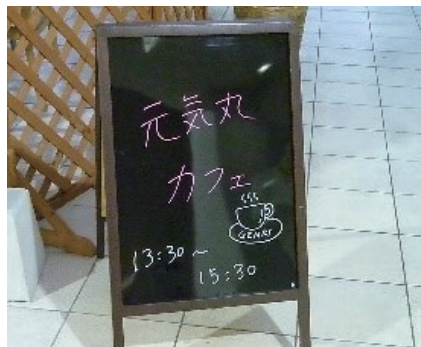 元気丸
カフェ
GENKI
13:30~
15:30